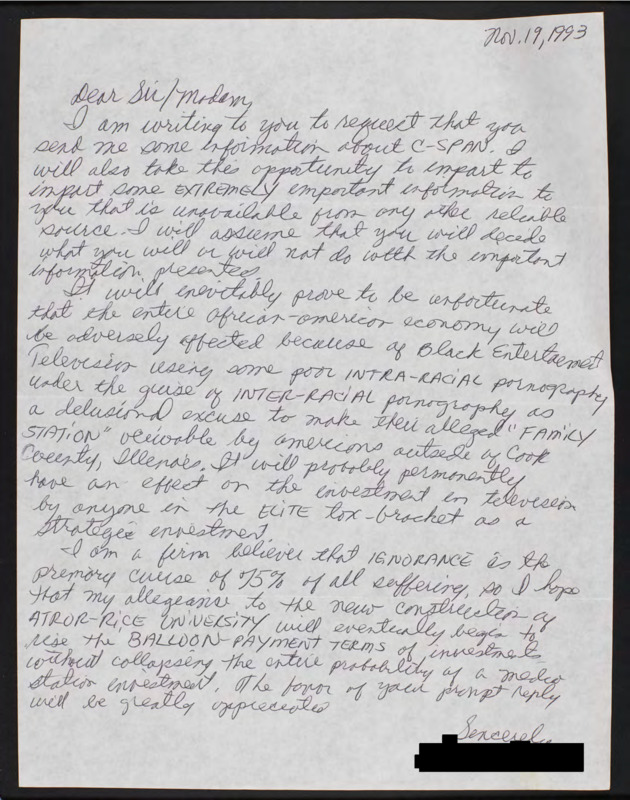 Nov. 19, 1993
Dear Sir/Madam,
I am writing to you to request that you
send me some information about C-SPAN. I
will also take this opportunity to impart to
impart some EXTREMELY important information to
you that is unavailable from any other reliable
source. I will assume that you will decide
what you will or will not do with the important
information presented.
It will inevitably prove to be unfortunate
that the entire african-american economy will
be adversely affected because of Black Entertaement
Television using some poor INTRA-RACIAL pornography
under the guise of INTER-RACIAL pornography as
a delusional excuse to make their alleged "FAMILY
STATION" receivable by americans outside of Cook
County, Illinois. It will probably permanently
have an effect on the investment in television
by anyone in the ELITE tax-bracket as a
strategic investment.
I am a firm believer that IGNORANCE is the
primary cause of 75% of all suffering, so I hope
that my allegiance to the new construction of
UNIVERSITY will eventually begin to
use the BALLOON-PAYMENT TERMS of investments
without collapsing the entire probability of a media
station investment. The favor of your prompt reply
will be greatly appreciated
Sincerely